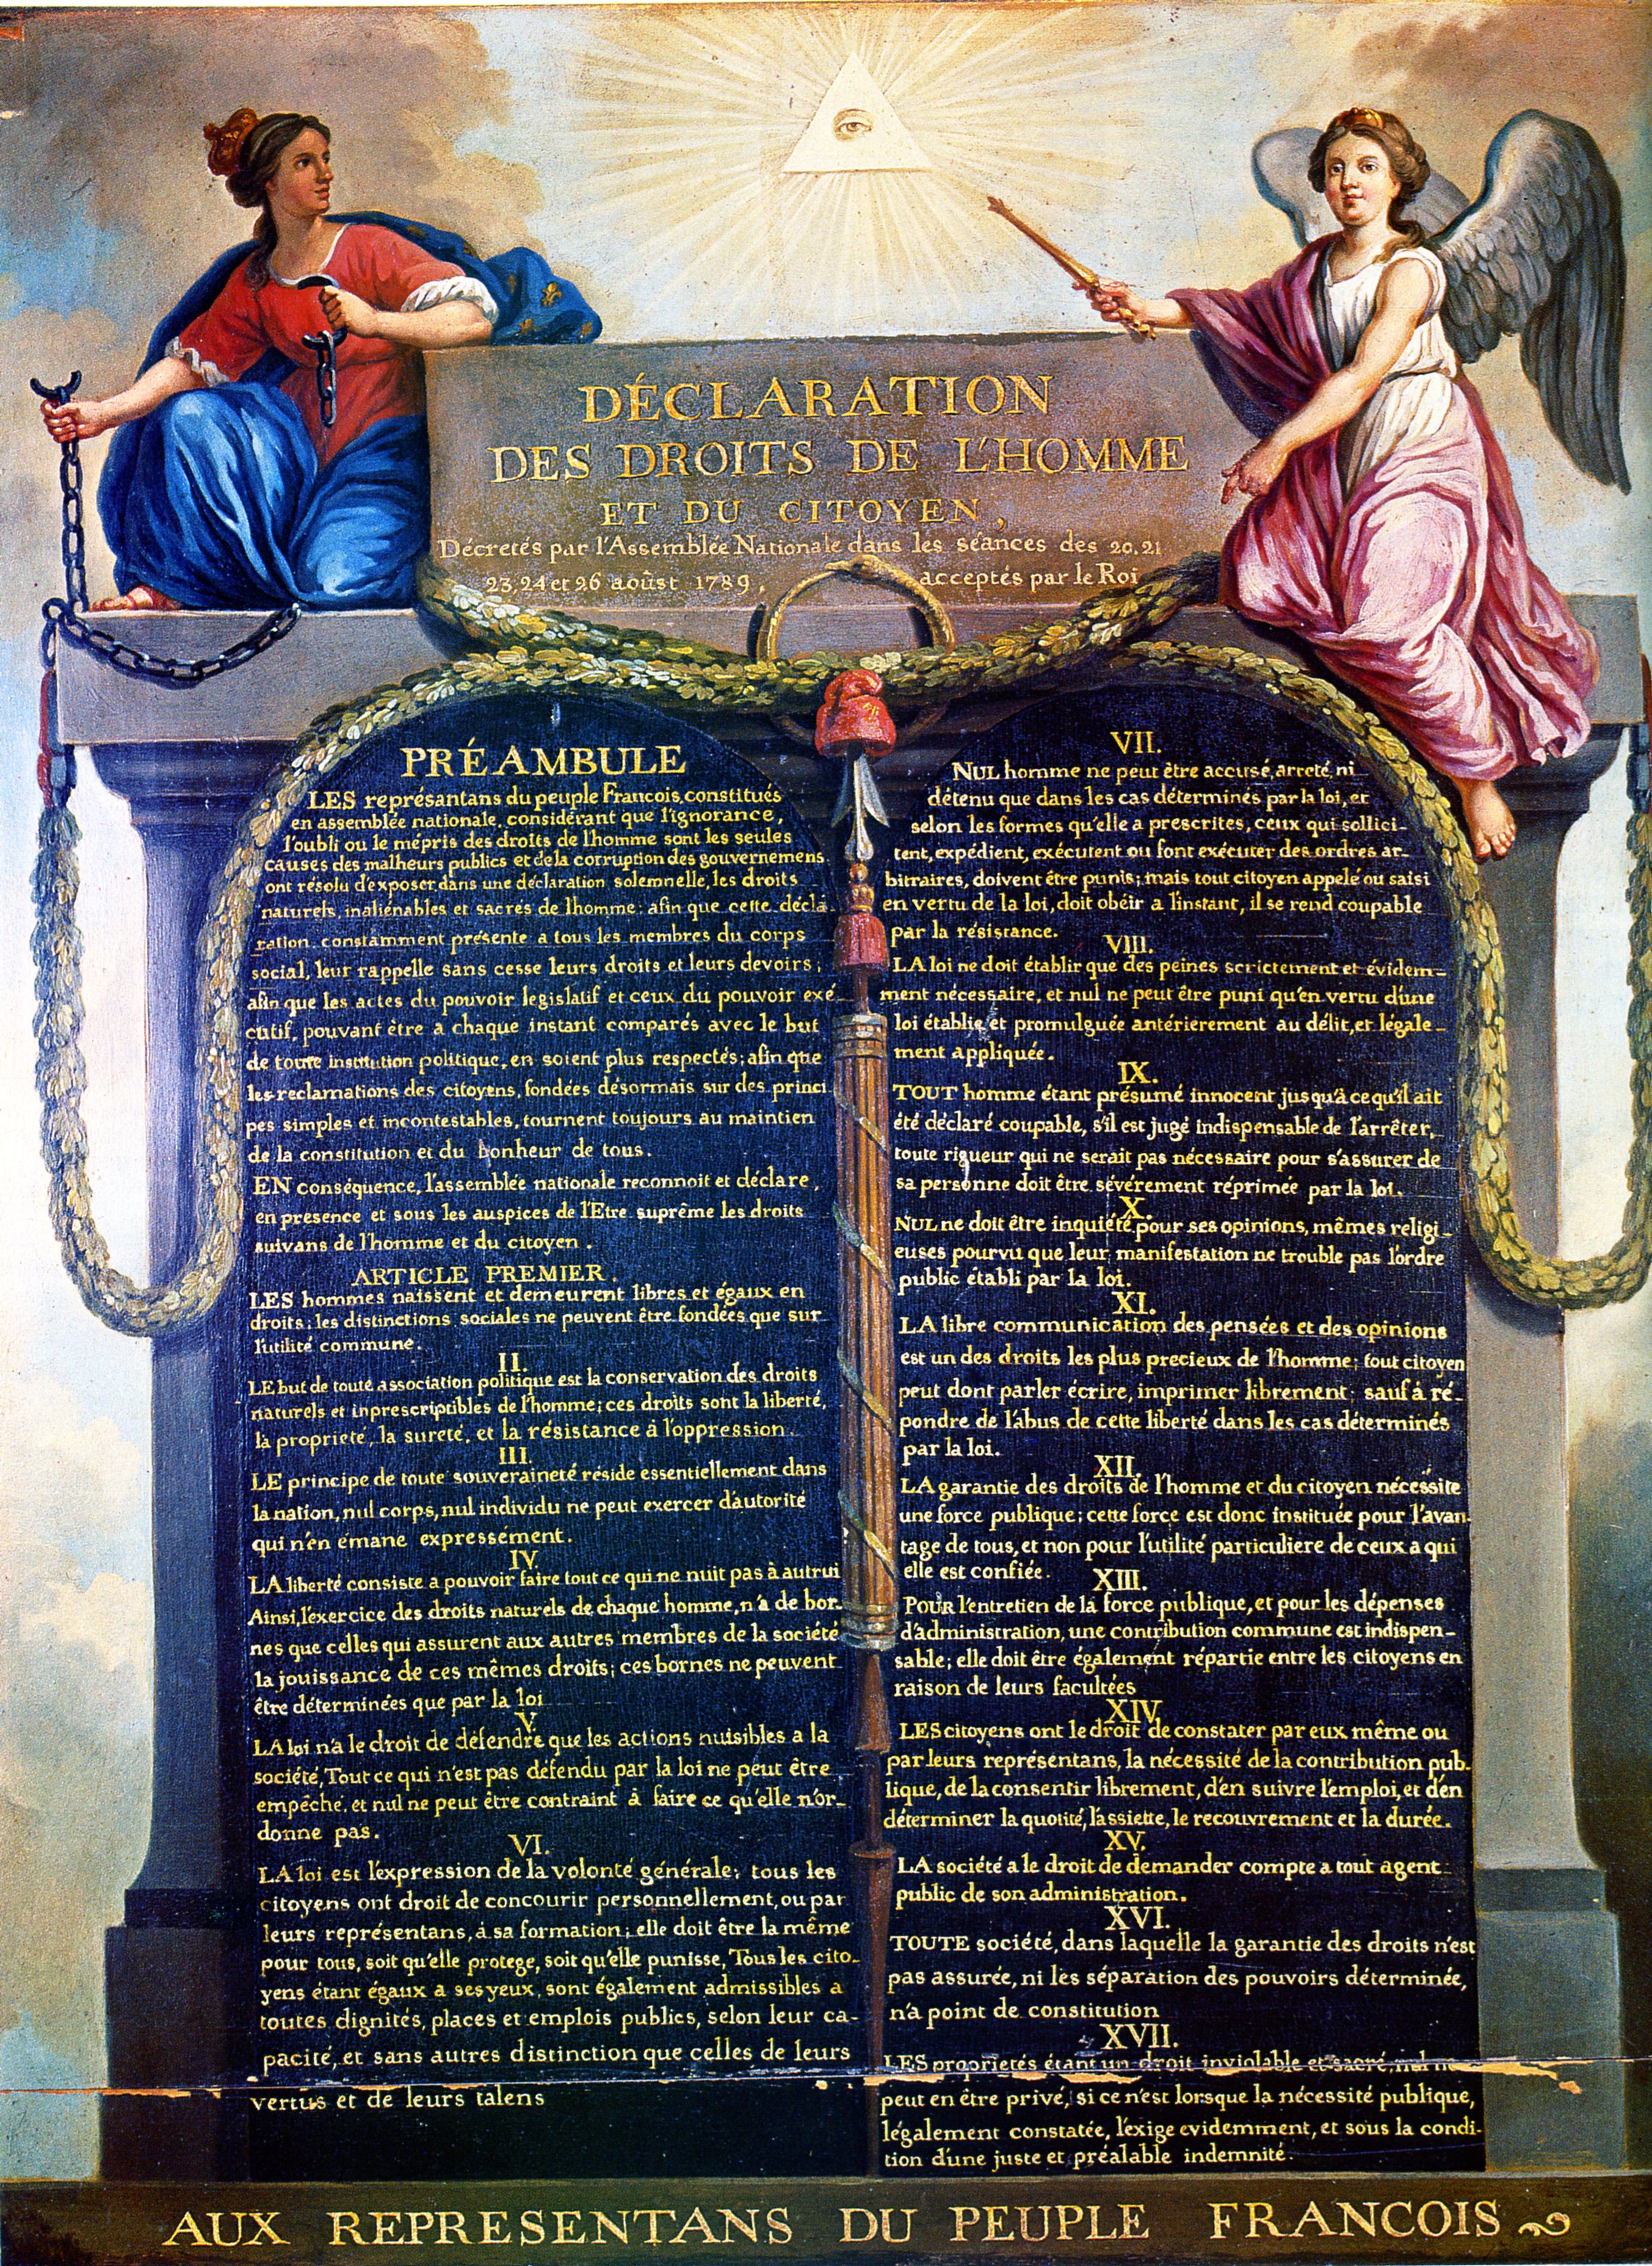 DÉCLARATION
DES DROITS DE L'HOMME
ET DU CITOYEN,
Décretés par l'Assemblée Nationale dans les séances des 20, 21
23, 24 et 26 aoûst 1789, acceptés par le Roi
PRÉAMBULE
LES représantans du peuple Francois, constitués
en assemblée nationale, considérant que l'ignorance,
l'oubli ou le mépris des droits de l'homme sont les seules
causes des malheurs publics et de la corruption des gouvernemens
ont résolu d'exposer dans une déclaration solemnelle, les droits
naturels, inaliénables et sacrés de l'homme: afin que cette décla-
ration constamment présente a tous les membres du corps
social, leur rappelle sans cesse leurs droits et leurs devoirs;
afin que les actes du pouvoir legislatif et ceux du pouvoir exé-
cutif, pouvant être a chaque instant comparés avec le but
de toute institution politique, en soient plus respectés; afin que
les reclamations des citoyens, fondées désormais sur des princi
pes simples et incontestables, tournent toujours au maintien
de la constitution et du bonheur de tous.
EN conséquence, l'assemblée nationale reconnoit et déclare,
en presence et sous les auspices de l'Etre suprême les droits
suivans de l'homme et du citoyen.
ARTICLE PREMIER.
LES hommes naissent et demeurent libres et égaux en
droits; les distinctions sociales ne peuvent être fondées que sur
l'utilité commune.
II.
LE but de toute association politique est la conservation des droits
naturels et inprescriptibles de l'homme; ces droits sont la liberté,
la propriété, la sureté, et la résistance à l'oppression.
III.
LE principe de toute souveraineté réside essentiellement dans
la nation, nul corps, nul individu ne peut exercer d'autorité
qui n'en émane expressément.
IV.
LA liberté consiste a pouvoir faire tout ce qui ne nuit pas à autrui
Ainsi, l'exercice des droits naturels de chaque homme, n'a de bor-
nes que celles qui assurent aux autres membres de la société
la jouissance de ces mêmes droits; ces bornes ne peuvent
être déterminées que par la loi
V.
LA loi n'a le droit de défendre que les actions nuisibles a la
société, Tout ce qui n'est pas défendu par la loi ne peut être
empêché, et nul ne peut être contraint à faire ce qu'elle n'or-
donne pas.
VI.
LA loi est l'expression de la volonté générale; tous les
citoyens ont droit de concourir personnellement, ou par
leurs représentans, à sa formation; elle doit être la même
pour tous, soit qu'elle protege, soit qu'elle punisse, Tous les cito-
yens étant égaux a ses yeux, sont également admissibles a
toutes dignités, places et emplois publics, selon leur ca-
pacité, et sans autres distinction que celles de leurs
vertus et de leurs talens
VII.
NUL homme ne peut être accusé, arreté, ni
détenu que dans les cas déterminés par la loi, et
selon les formes qu'elle a prescrites, ceux qui sollici-
tent, expédient, exécutent ou font exécuter des ordres ar-
bitraires, doivent être punis; mais tout citoyen appelé ou saisi
en vertu de la loi, doit obéir a l'instant, il se rend coupable
par la résistance.
VIII.
LA loi ne doit établir que des peines scrictement et évidem-
ment nécessaire, et nul ne peut être puni qu'en vertu d'une
loi établie et promulguée antérierement au délit, et légale-
ment appliquée.
IX.
TOUT homme étant présumé innocent jusqu'à ce qu'il ait
été déclaré coupable, s'il est jugé indispensable de l'arrêter,
toute rigueur qui ne serait pas nécessaire pour s'assurer de
sa personne doit être sévérement réprimée par la loi.
X.
NUL ne doit être inquiété pour ses opinions, mêmes religi-
euses pourvu que leur manifestation ne trouble pas l'ordre
public établi par la loi.
XI.
LA libre communication des pensées et des opinions
est un des droits les plus precieux de l'homme; tout citoyen
peut dont parler écrire, imprimer librement; sauf à ré-
pondre de l'abus de cette liberté dans les cas déterminés
par la loi.
XII.
LA garantie des droits de l'homme et du citoyen nécessite
une force publique; cette force est donc instituée pour l'avan-
tage de tous, et non pour l'utilité particuliere de ceux a qui
elle est confiée.
XIII.
POUR l'entretien de la force publique, et pour les dépenses
d'administration, une contribution commune est indispen-
sable; elle doit être également répartie entre les citoyens en
raison de leurs facultées
XIV.
LES citoyens ont le droit de constater par eux même ou
par leurs représentans, la nécessité de la contribution pub-
lique, de la consentir librement, d'en suivre l'emploi, et d'en
déterminer la quotité, l'assiette, le recouvrement et la durée.
XV.
LA société a le droit de demander compte a tout agent
public de son administration.
XVI.
TOUTE société, dans laquelle la garantie des droits n'est
pas assurée, ni les séparation des pouvoirs déterminée,
n'a point de constitution
XVII.
LES proprietés étant un droit inviolable et sacré, nul ne
peut en être privé, si ce n'est lorsque la nécessité publique,
légalement constatée, l'exige evidemment, et sous la condi-
tion d'une juste et préalable indemnité.
AUX REPRESENTANS DU PEUPLE FRANCOIS